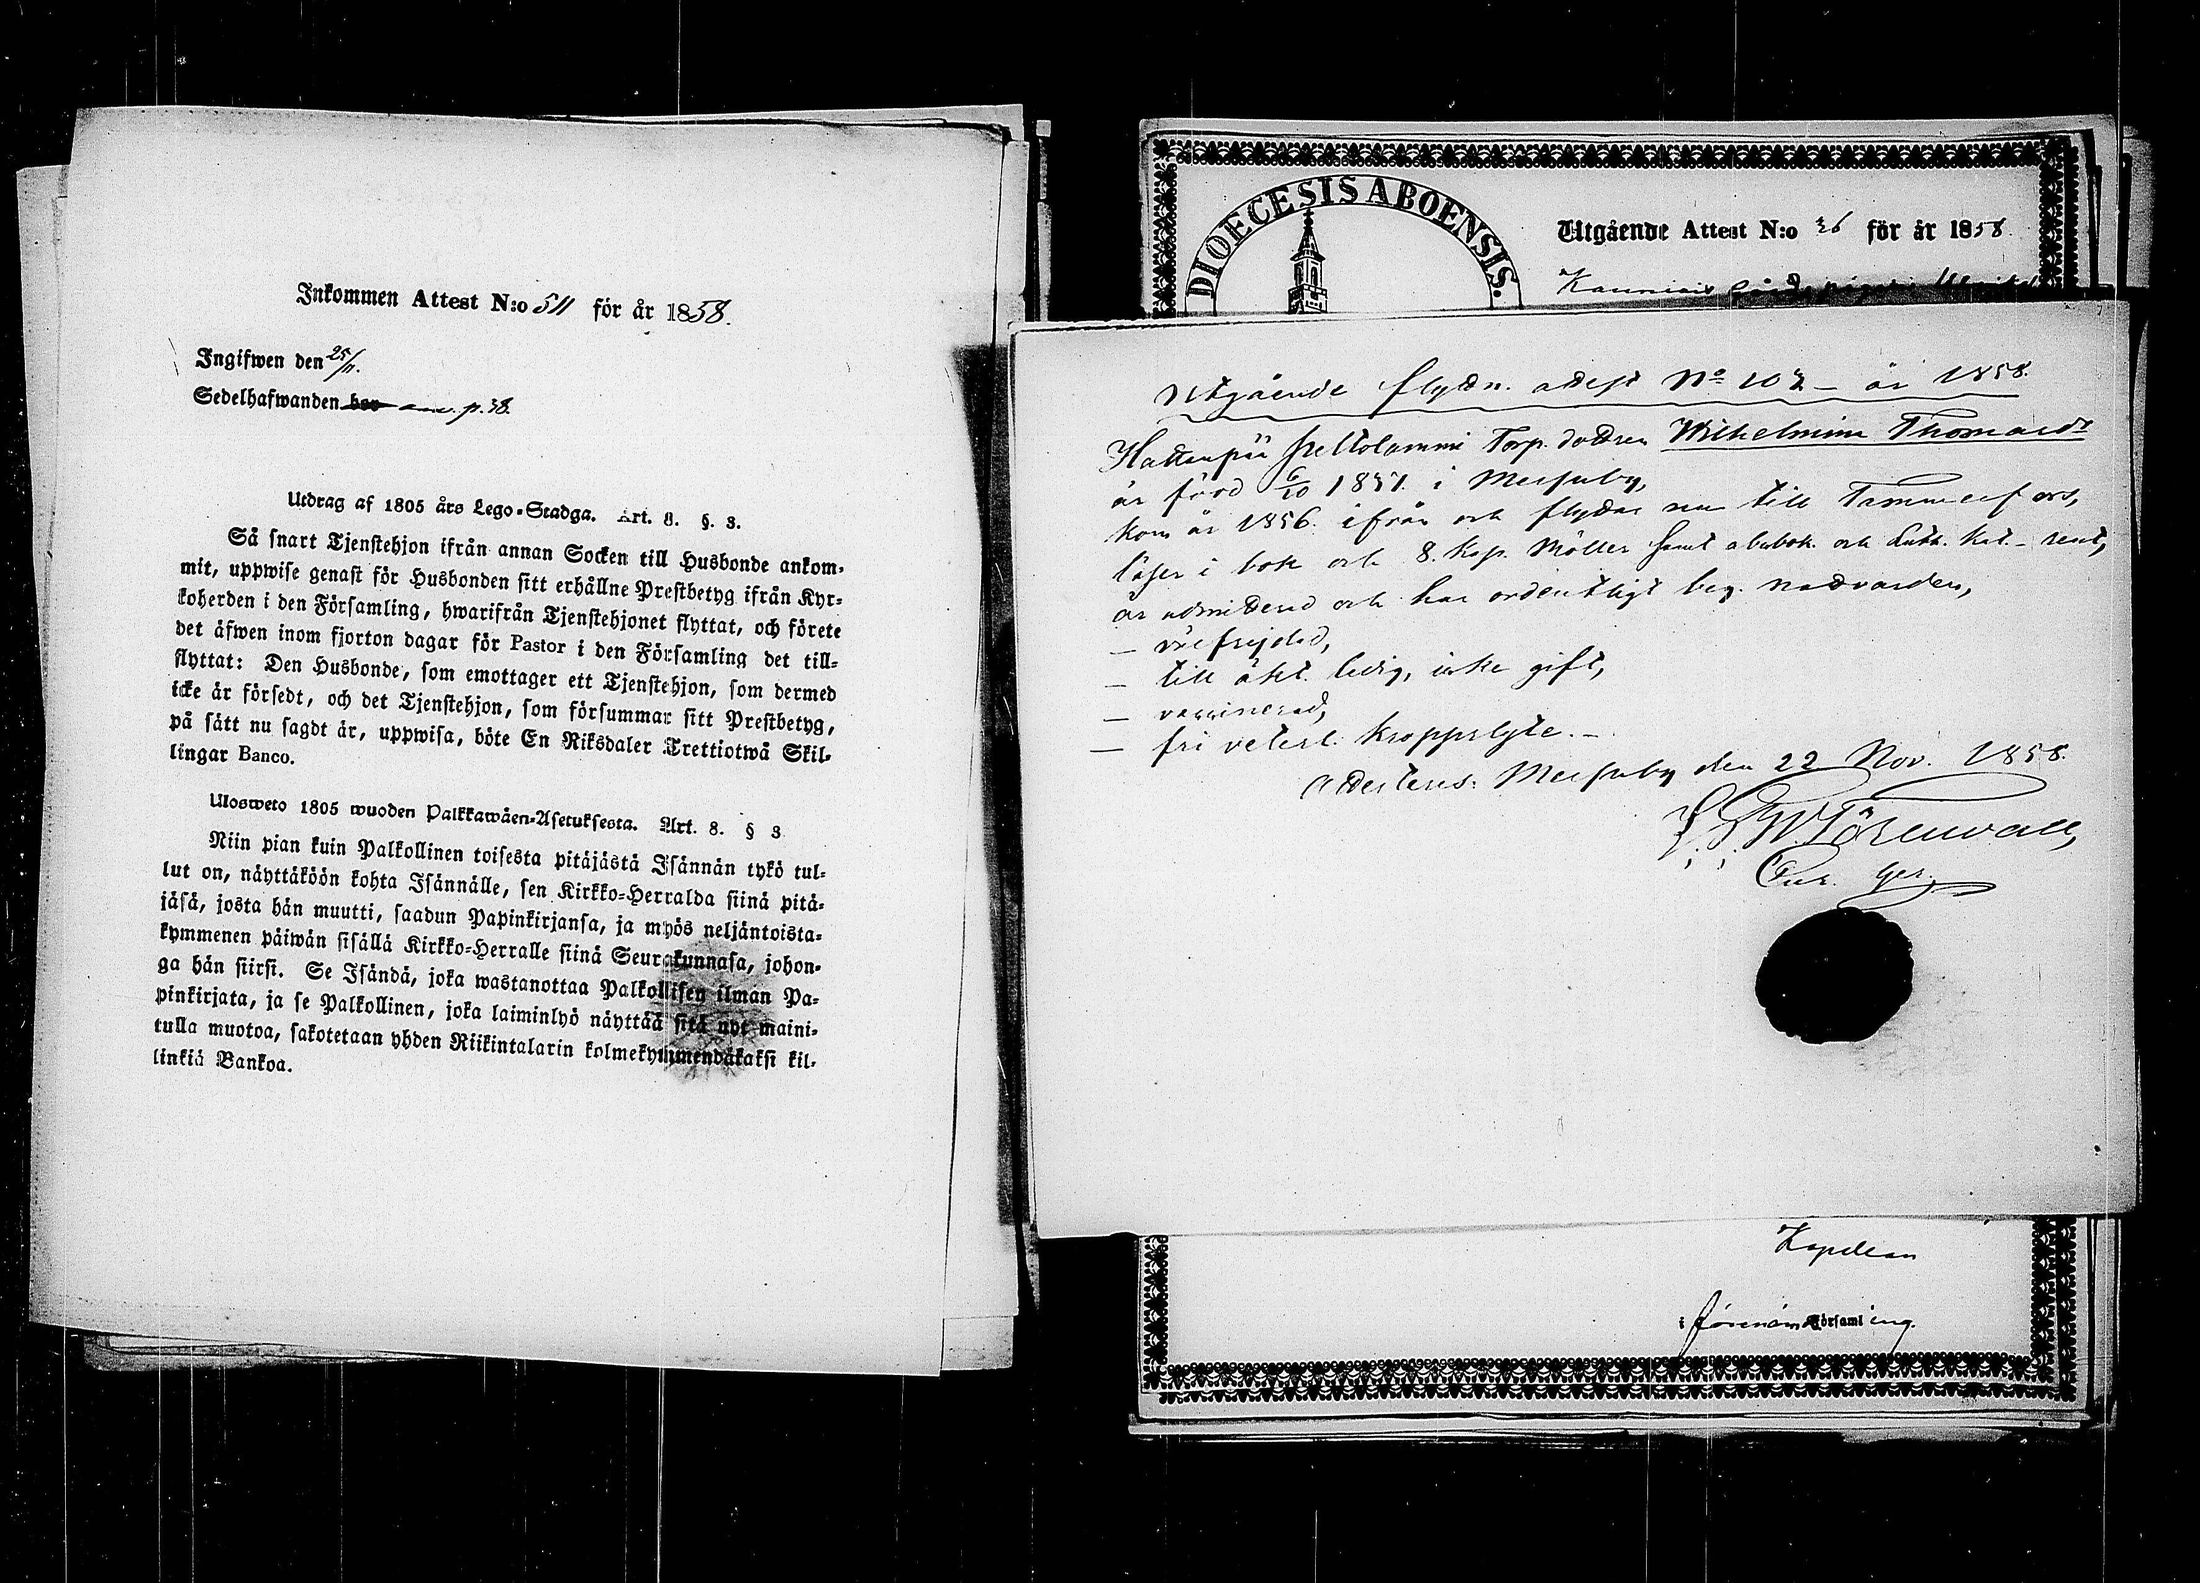 Inkommen Attest N:o 511 för år 1858.
Ingifwen den 25/11.
Sedelhafwanden bor anv. p. 38.
Utdrag af 1805 års Lego-Stadga. Art. 8. §. 3.
Så snart Tjenstehjon ifrån annan Socken till Husbonde ankom-
mit, uppwise genast för Husbonden sitt erhållne Prestbetyg ifrån Kyr-
koherden i den Församling, hwarifrån Tjenstehjonet flyttat, och förete
det äfwen inom fjorton dagar för Pastor i den Församling det till-
flyttat: Den Husbonde, som emottager ett Tjenstehjon, som dermed
icke är försedt, och det Tjenstehjon, som försummar sitt Prestbetyg,
på sätt nu sagdt är, uppwisa, böte En Riksdaler Trettiotwå Skil-
lingar Banco.
Ulosweto 1805 wuoden Palkkawäen-Asetuksesta. Art. 8. § 3
Niin pian kuin Palkollinen toisesta pitäjästä Isännän tykö tul-
lut on, näyttäköön kohta Isännälle, sen Kirkko-Herralda siinä pitä-
jäsä, josta hän muutti, saadun Papinkirjansa, ja myös neljäntoista-
kymmenen päiwän sisällä Kirkko-Herralle siinä Seurakunnasa, johon-
ga hän siirsi. Se Isändä, joka wastanottaa Palkollisen ilman Pa-
pinkirjata, ja se Palkollinen, joka laiminlyö näyttää sitä nyt maini-
tulla muotoa, sakotetaan yhden Riikintalarin kolmekymmendäkaksi kil-
linkiä Bankoa.
DIOECESIS ABOENSIS.
Utgående Attest N:o 26 för år 1858.
Utgående flyttn. attest No 107 – år 1858.
Hattanpää Peltolammi Torp. dottren Wilhelmina Thomasdr
är född 6/10 1837. i Messuby,
kom år 1856. ifrån och flyttar nu till Tammerfors,
läser i bok och 8. Kap. Möller samt abcbok. och Luth. Kat. – rent,
är admitterad och har ordentligt beg. nattvarden,
– väl frejdad,
– till äkt. ledig, icke gift,
– vaccinerad,
– fri veterl. kroppslyte. –
Attesteras. Messuby den 22 Nov. 1858.
Törnwall,
Kapellan
i församling.